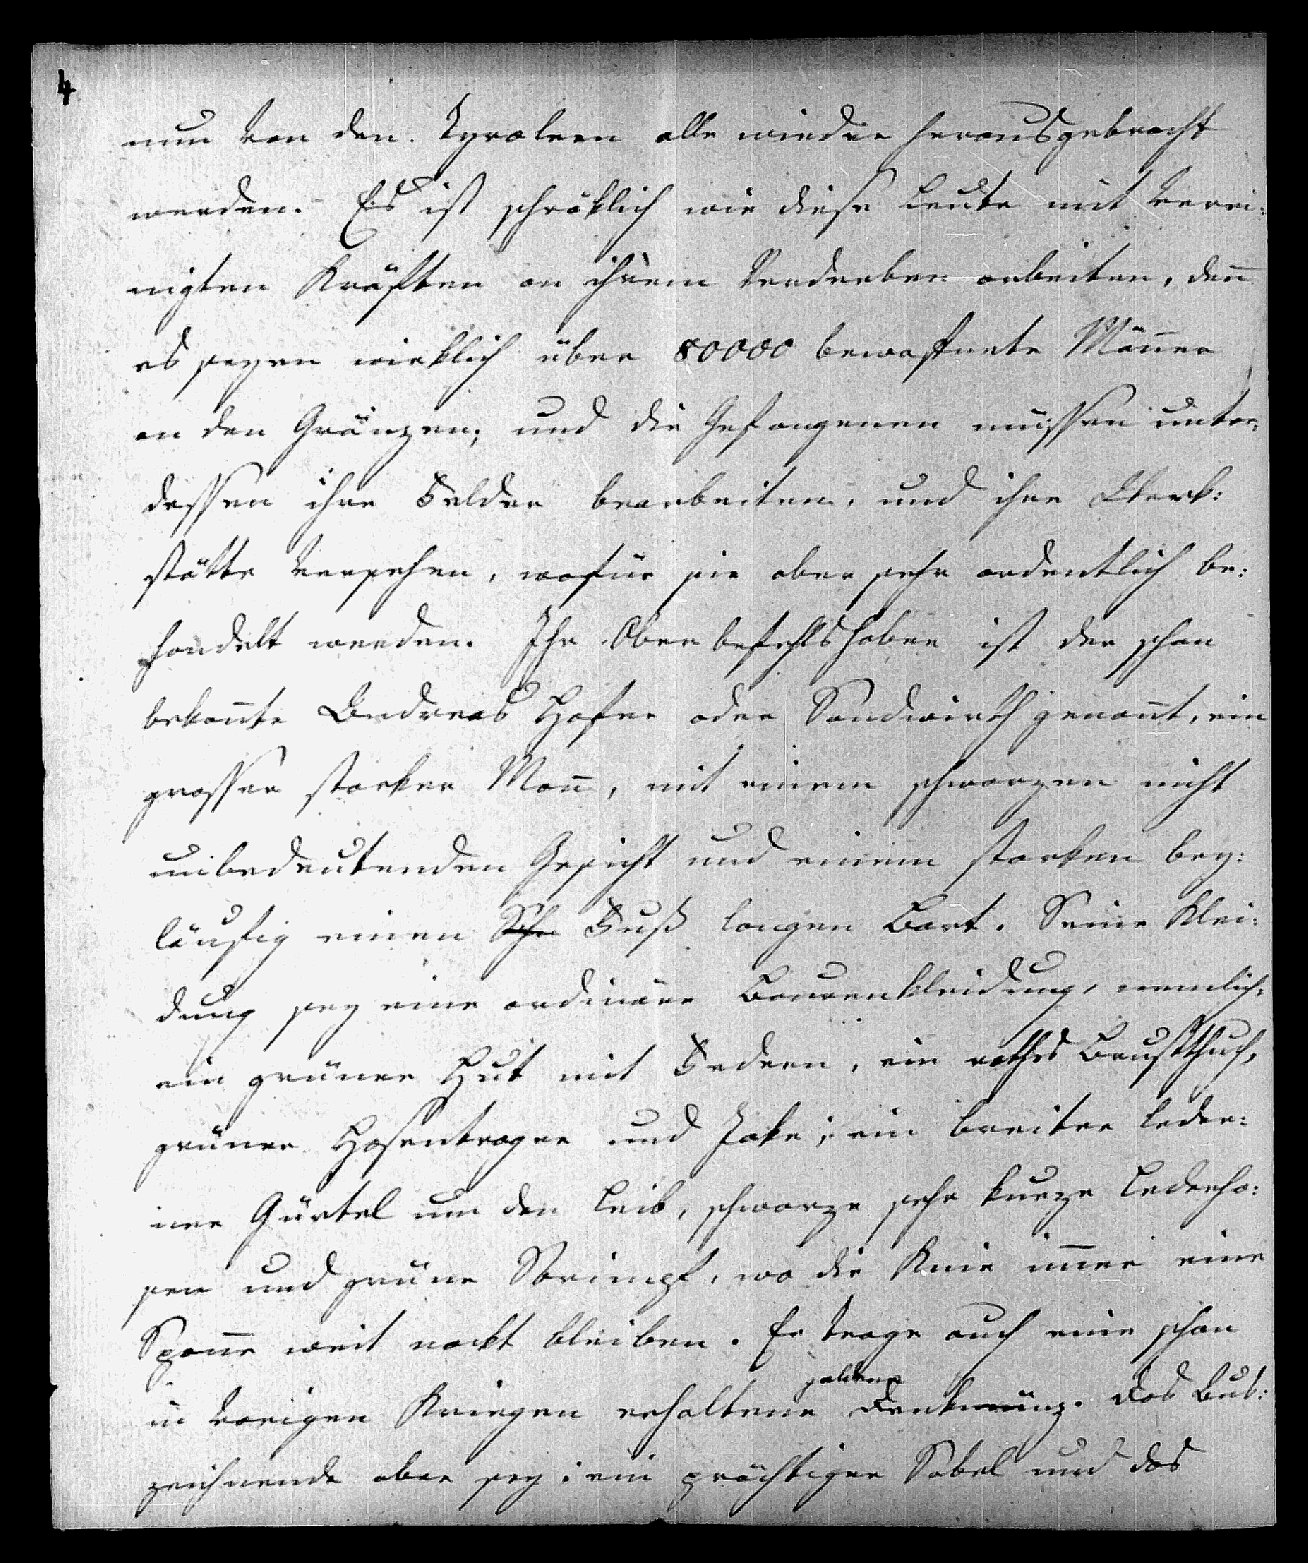 4
nun von den Tyrolern alle wieder herausgebracht
werden. Es ist schröklich wie diese Leute mit verei:
nigten Kräften an ihrem Verderben arbeiten, deñ
es seyen wirklich über 80000 bewafnete Mäñer
an den Gränzen, und die Gefangenen müssen unter:
dessen ihre Felder bearbeiten, und ihre Werk:
stätte versehen, wofür sie aber sehr ordentlich be:
handelt werden. Ihr Oberbefehlshaber ist der schon
bekañte Andreas Hofer oder Sandwirth genañt, ein
grosser starker Mañ, mit einem schwarzen nicht
unbedeutenden Gesicht und einem starken bey:
läufig einen Sch Fuß langen Bart. Seine Klei:
dung sey eine ordinäre Baurenkleidung, nemlich:
ein grüner Hut mit Federn, ein rothes Brustthuch,
grüner Hosentrager und Jake, ein breiter leder:
ner Gürtel um den Leib, schwarze sehr kurze Lederho:
sen und grüne Strimpf, wo die Knie im̃er eine
Spañe weit nackt bleiben. Er trage auch eine schon
goldene
in vorigen Kriegen erhaltene Denkmünz. Das Aus:
zeichnende aber sey: ein prächtiger Sabel und das